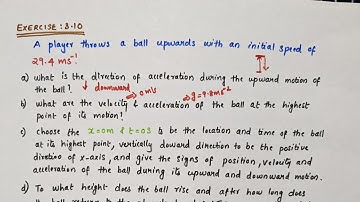 EXERCISE : 3.10
A player throws a ball upwards with an initial speed of
29.4 ms⁻¹
a) what is the direction of acceleration during the upward motion of
the ball? ↓ downward ⇒ 0m/s ⇒ g = 9.8ms⁻²
b) what are the velocity & acceleration of the ball at the highest
point of its motion?
c) choose the x=0m & t=0s to be the location and time of the ball
at its highest point, vertically doward direction to be the positive
direction of x-axis, and give the signs of position, velouty and
acceleration of the ball during its upward and downward motion.
d) To what height does the ball rise and after how long does
the ball return to the